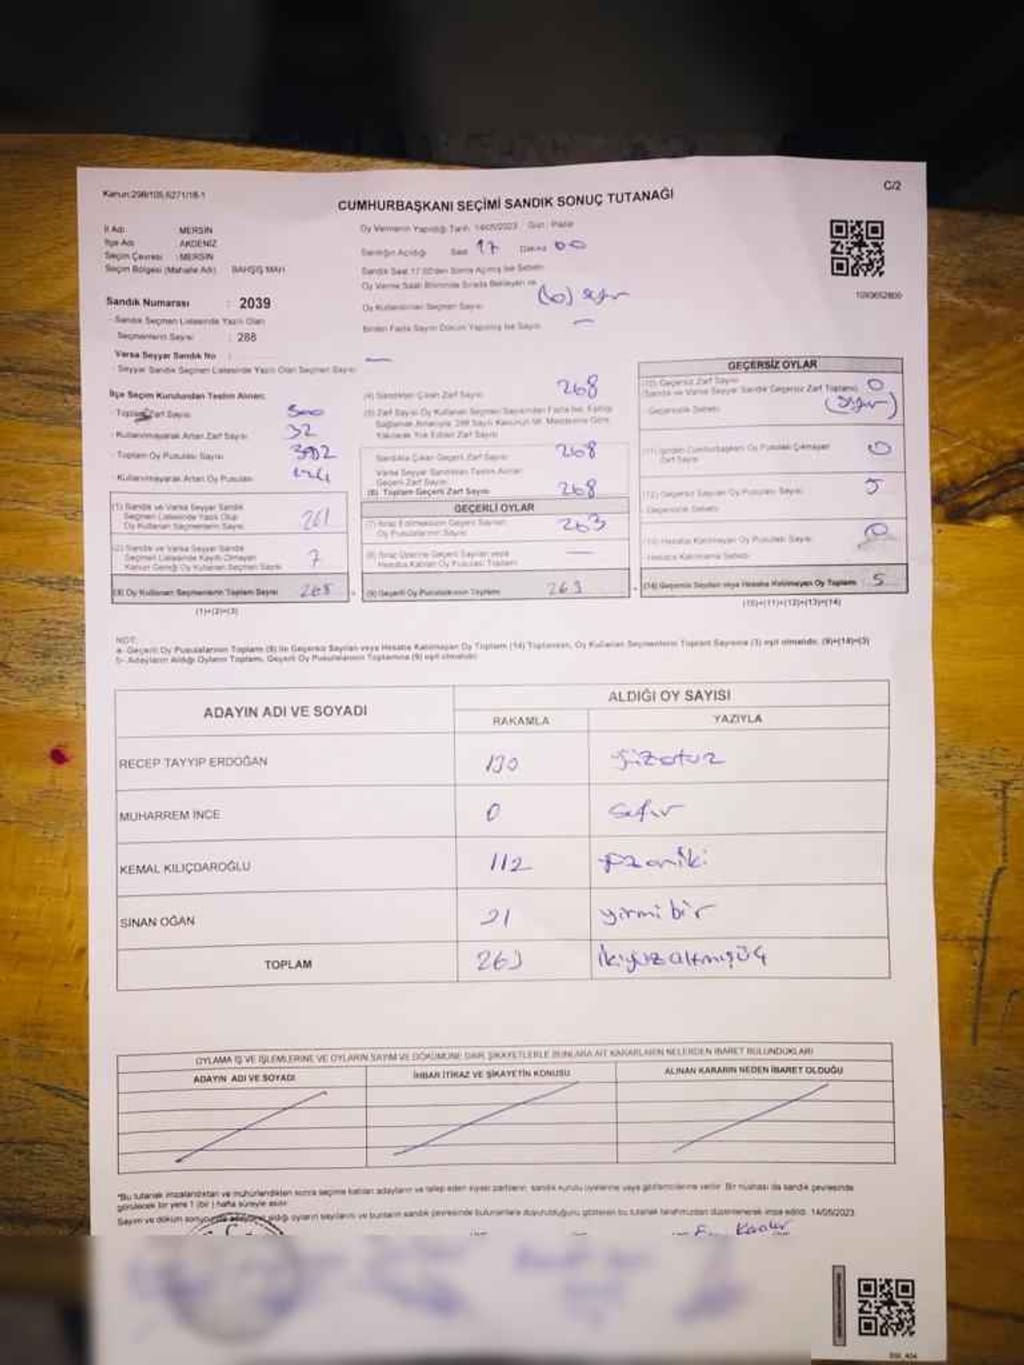 Kanun:298/105,6271/18-1
C/2
CUMHURBAŞKANI SEÇİMİ SANDIK SONUÇ TUTANAĞI
İl Adı : MERSİN
İlçe Adı : AKDENİZ
Seçim Çevresi : MERSİN
Seçim Bölgesi (Mahalle Adı) : BAHŞİŞ MAH
Sandık Numarası : 2039
- Sandık Seçmen Listesinde Yazılı Olan
Seçmenlerin Sayısı : 288
Varsa Seyyar Sandık No :
Seyyar Sandık Seçmen Listesinde Yazılı Olan Seçmen Sayısı
Oy Vermenin Yapıldığı Tarih: 14/05/2023 Gün: Pazar
Sandığın Açıldığı Saat 17 Dakika 00
Sandık Saat 17:00'den Sonra Açılmış İse Sebebi
Oy Verme Saati Bitiminde Sırada Bekleyen ve
Oy Kullandırılan Seçmen Sayısı sıfır
Birden Fazla Sayım Döküm Yapılmış İse Sayısı —
İlçe Seçim Kurulundan Teslim Alınan;
- Toplam Zarf Sayısı
- Kullanılmayarak Artan Zarf Sayısı 32
- Toplam Oy Pusulası Sayısı
- Kullanılmayarak Artan Oy Pusulası
(1) Sandık ve Varsa Seyyar Sandık
Seçmen Listesinde Yazılı Olup
Oy Kullanan Seçmenlerin Sayısı 261
(2) Sandık ve Varsa Seyyar Sandık
Seçmen Listesinde Kayıtlı Olmayan
Kanun Gereği Oy Kullanan Seçmen Sayısı 7
(3) Oy Kullanan Seçmenlerin Toplam Sayısı 268
(1)+(2)=(3)
(4) Sandıktan Çıkan Zarf Sayısı 268
(5) Zarf Sayısı Oy Kullanan Seçmen Sayısından Fazla İse, Eşitliği
Sağlamak Amacıyla, 298 Sayılı Kanunun 98. Maddesine Göre
Yakılarak Yok Edilen Zarf Sayısı
Sandıkta Çıkan Geçerli Zarf Sayısı 268
Varsa Seyyar Sandıktan Teslim Alınan
Geçerli Zarf Sayısı
(6) Toplam Geçerli Zarf Sayısı 268
GEÇERLİ OYLAR
(7) İtiraz Edilmeksizin Geçerli Sayılan
Oy Pusulalarının Sayısı 263
(8) İtiraz Üzerine Geçerli Sayılan veya
Hesaba Katılan Oy Pusulası Toplamı —
(9) Geçerli Oy Pusulalarının Toplamı 263
1093652800
GEÇERSİZ OYLAR
(10) Geçersiz Zarf Sayısı 0
(Sandık ve Varsa Seyyar Sandık Geçersiz Zarf Toplamı)
- Geçersizlik Sebebi: (sıfır)
(11) İçinden Cumhurbaşkanı Oy Pusulası Çıkmayan
Zarf Sayısı 0
(12) Geçersiz Sayılan Oy Pusulası Sayısı 5
- Geçersizlik Sebebi:
(13) Hesaba Katılmayan Oy Pusulası Sayısı 0
Hesaba Katılmama Sebebi:
(14) Geçersiz Sayılan veya Hesaba Katılmayan Oy Toplamı 5
(10)+(11)+(12)+(13)=(14)
NOT:
a- Geçerli Oy Pusulalarının Toplamı (9) ile Geçersiz Sayılan veya Hesaba Katılmayan Oy Toplamı (14) Toplamları, Oy Kullanan Seçmenlerin Toplam Sayısına (3) eşit olmalıdır. (9)+(14)=(3)
b- Adayların Aldığı Oyların Toplamı, Geçerli Oy Pusulalarının Toplamına (9) eşit olmalıdır.
ADAYIN ADI VE SOYADI
ALDIĞI OY SAYISI
RAKAMLA YAZIYLA
RECEP TAYYİP ERDOĞAN 130 yüzotuz
MUHARREM İNCE 0 sıfır
KEMAL KILIÇDAROĞLU 112 yüzoniki
SİNAN OĞAN 21 yirmibir
TOPLAM 263 ikiyüzaltmışüç
OYLAMA İŞ VE İŞLEMLERİNE VE OYLARIN SAYIM VE DÖKÜMÜNE DAİR ŞİKAYETLERLE BUNLARA AİT KARARLARIN NELERDEN İBARET BULUNDUKLARI
ADAYIN ADI VE SOYADI
İHBAR İTİRAZ VE ŞİKAYETİN KONUSU
ALINAN KARARIN NEDEN İBARET OLDUĞU
*Bu tutanak imzalandıktan ve mühürlendikten sonra seçime katılan adayların ve talep eden siyasi partilerin, sandık kurulu üyelerine veya gözlemcilerine verilir. Bir nüshası da sandık çevresinde
görülecek bir yere 1 (bir) hafta süreyle asılır.
Sayım ve döküm sonucunda adayların aldığı oyların sayılarını ve bunların sandık çevresinde bulunanlara duyurulduğunu gösteren bu tutanak tarafımızdan düzenlenerek imza edildi. 14/05/2023